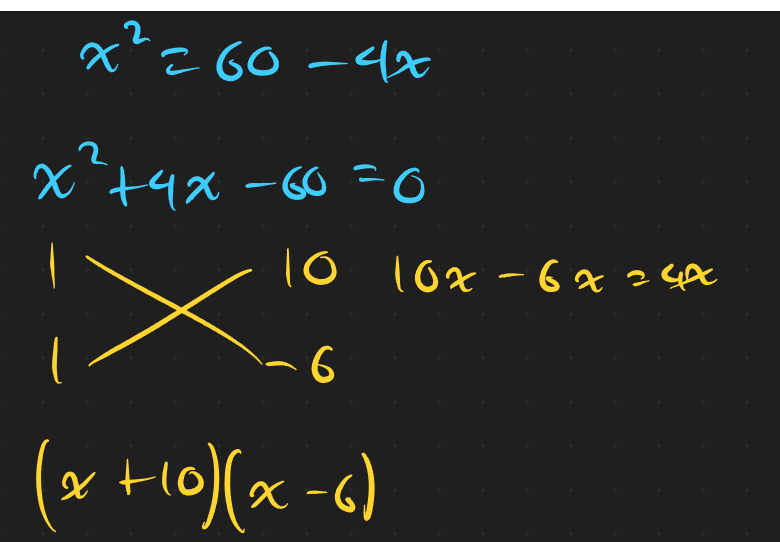 x² = 60 - 4x
x² + 4x - 60 = 0
1 10 10x - 6x = 4x
1 -6
(x + 10)(x - 6)